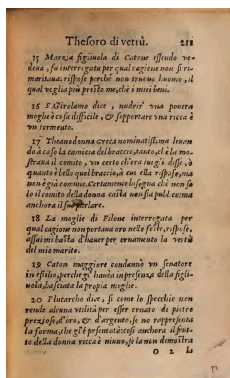 Thesoro di vertù. 211
15 Marzia figliuola di Catone essendo ve-
doua, fu interrogata per qual cagione non si ri-
maritaua: rispose perche non truouo huomo, il
qual voglia più presto me, chè i miei beni.
16 S. Girolamo dice, nudrir vna pouera
moglie è cosa difficile, & sopportare vna ricca è
vn tormento.
17 Theanodonna Greca nominatissima leuan
do à caso la camicia del braccio, tanto, chè lo mo-
straua il comito, vn certo ch'era iui gli disse, ò
quanto è bello quel braccio, à cui ella rispose, ma
non è già commune. Certamente bisogna chè non so
lo il comito della donna casta non sia publico: ma
anchora il suo parlare.
18 La moglie di Filone interrogata per
qual cagione non portaua oro nelle feste, rispose,
assai mi basta d'hauer per ornamento la vertù
del mio marito.
19 Caton maggiore condannò vn senatore
in esilio, perche egli hauea in presenza della figli-
uola, basciata la propia moglie.
20 Plutarcho dice, si come lo specchio non
rende alcuna vtilità per esser ornato di pietre
preziose, d'oro, & d'argento, se no rappresenta
la forma, che gl'è presentata: così anchora il frut-
to della donna ricca è niuno, se la non dimostra
O 2 la